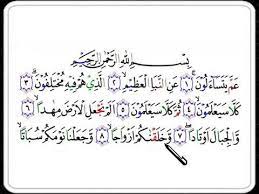 بِسْمِ اللهِ الرَّحْمٰنِ الرَّحِيْمِ
عَمَّ يَتَسَاءَلُونَ ﴿١﴾ عَنِ النَّبَإِ الْعَظِيْمِ ﴿٢﴾ الَّذِي هُمْ فِيهِ مُخْتَلِفُونَ ﴿٣﴾
كَلَّا سَيَعْلَمُونَ ﴿٤﴾ ثُمَّ كَلَّا سَيَعْلَمُونَ ﴿٥﴾ أَلَمْ نَجْعَلِ الْأَرْضَ مِهَادًا ﴿٦﴾
وَالْجِبَالَ أَوْتَادًا ﴿٧﴾ وَخَلَقْنَاكُمْ أَزْوَاجًا ﴿٨﴾ وَجَعَلْنَا نَوْمَكُمْ سُبَاتًا ﴿٩﴾